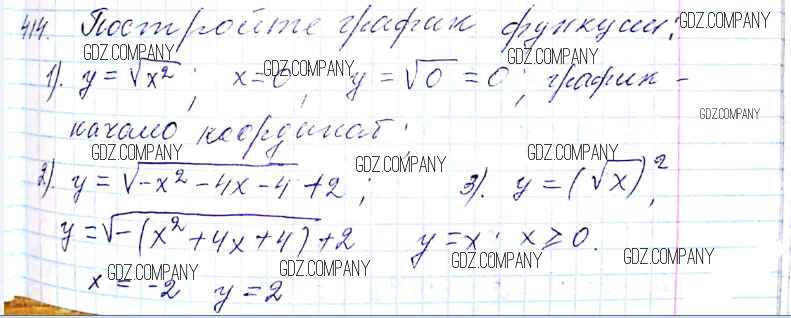 414. Постройте график функции: GDZ.COMPANY
GDZ.COMPANY GDZ.COMPANY GDZ.COMPANY
1). y = √x² ; x=0, y = √0 = 0; график -
GDZ.COMPANY
начало координат.
GDZ.COMPANY GDZ.COMPANY GDZ.COMPANY
2). y = √-x² - 4x - 4 + 2 ; 3). y = (√x)²,
y = √-(x² + 4x + 4) + 2 y = x, x ≥ 0.
GDZ.COMPANY GDZ.COMPANY GDZ.COMPANY GDZ.COMPANY
x = -2 y = 2